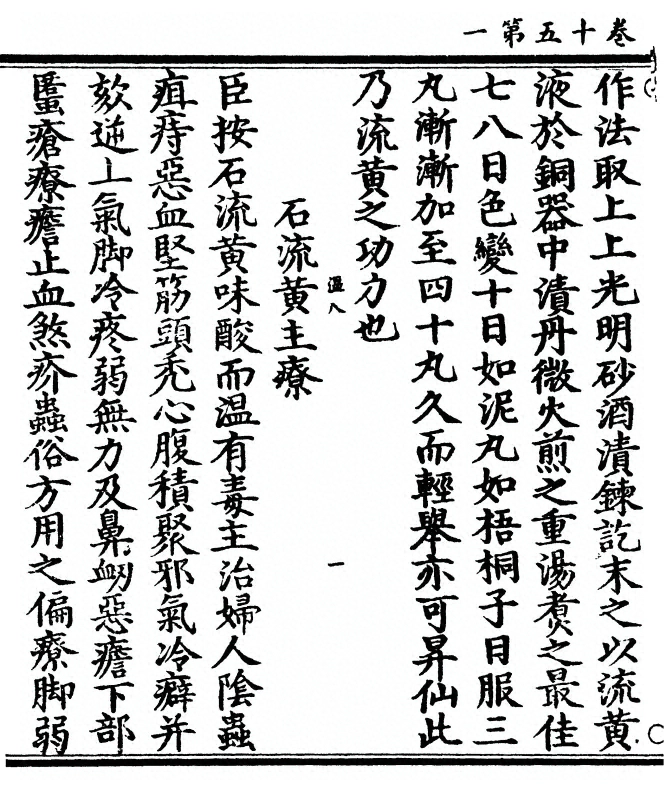 卷十五第一
作法取上上光明砂酒漬鍊訖末之以流黄
液於銅器中漬丹微火煎之重湯煑之最佳
七八日色變十日如泥丸如梧桐子日服三
丸漸漸加至四十丸久而輕舉亦可昇仙此
乃流黄之功力也
温八
一
石流黄主療
臣按石流黄味酸而温有毒主治婦人陰蟲
疽痔惡血堅筋頭禿心腹積聚邪氣冷癖并
欬逆上氣脚冷疼弱無力及鼻衂惡瘡下部
䘌瘡療瘡止血煞疥蟲俗方用之偏療脚弱